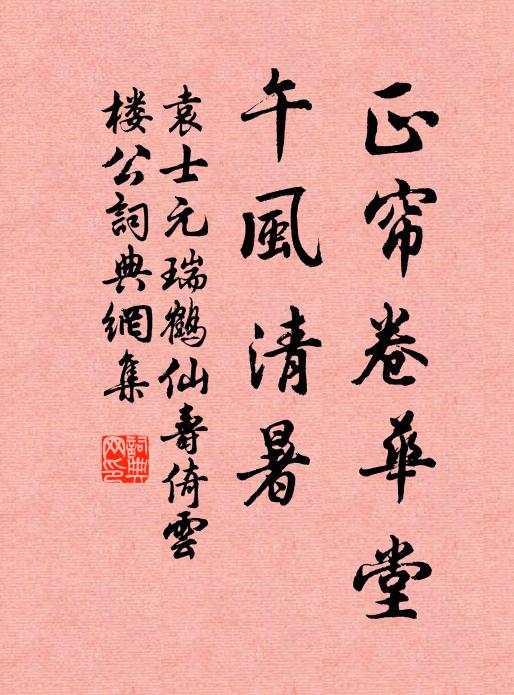 正帘卷華堂
午風清暑
袁士元瑞鶴仙壽倚雲
楼公詞典網集
詞典
网印